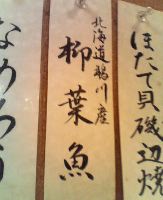 ほたて貝磯辺焼
北海道鵡川産
柳葉魚
なめろう